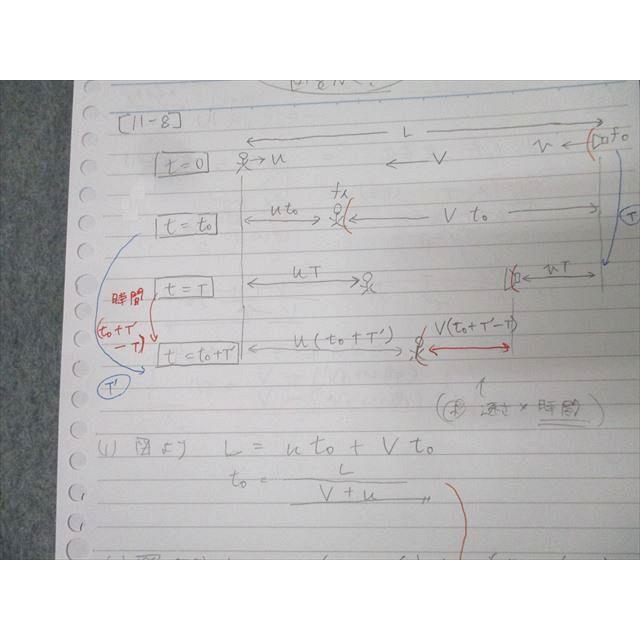 [11-8]
L
t=0 u V v f₀
fx
t=t₀ ut₀ Vt₀ T
時間 t=T uT vT
(t₀+T'
-T) t=t₀+T' u(t₀+T') V(t₀+T'-T)
T'
速さ×時間)
(1) 図より L = ut₀ + Vt₀
t₀ = L
V+u